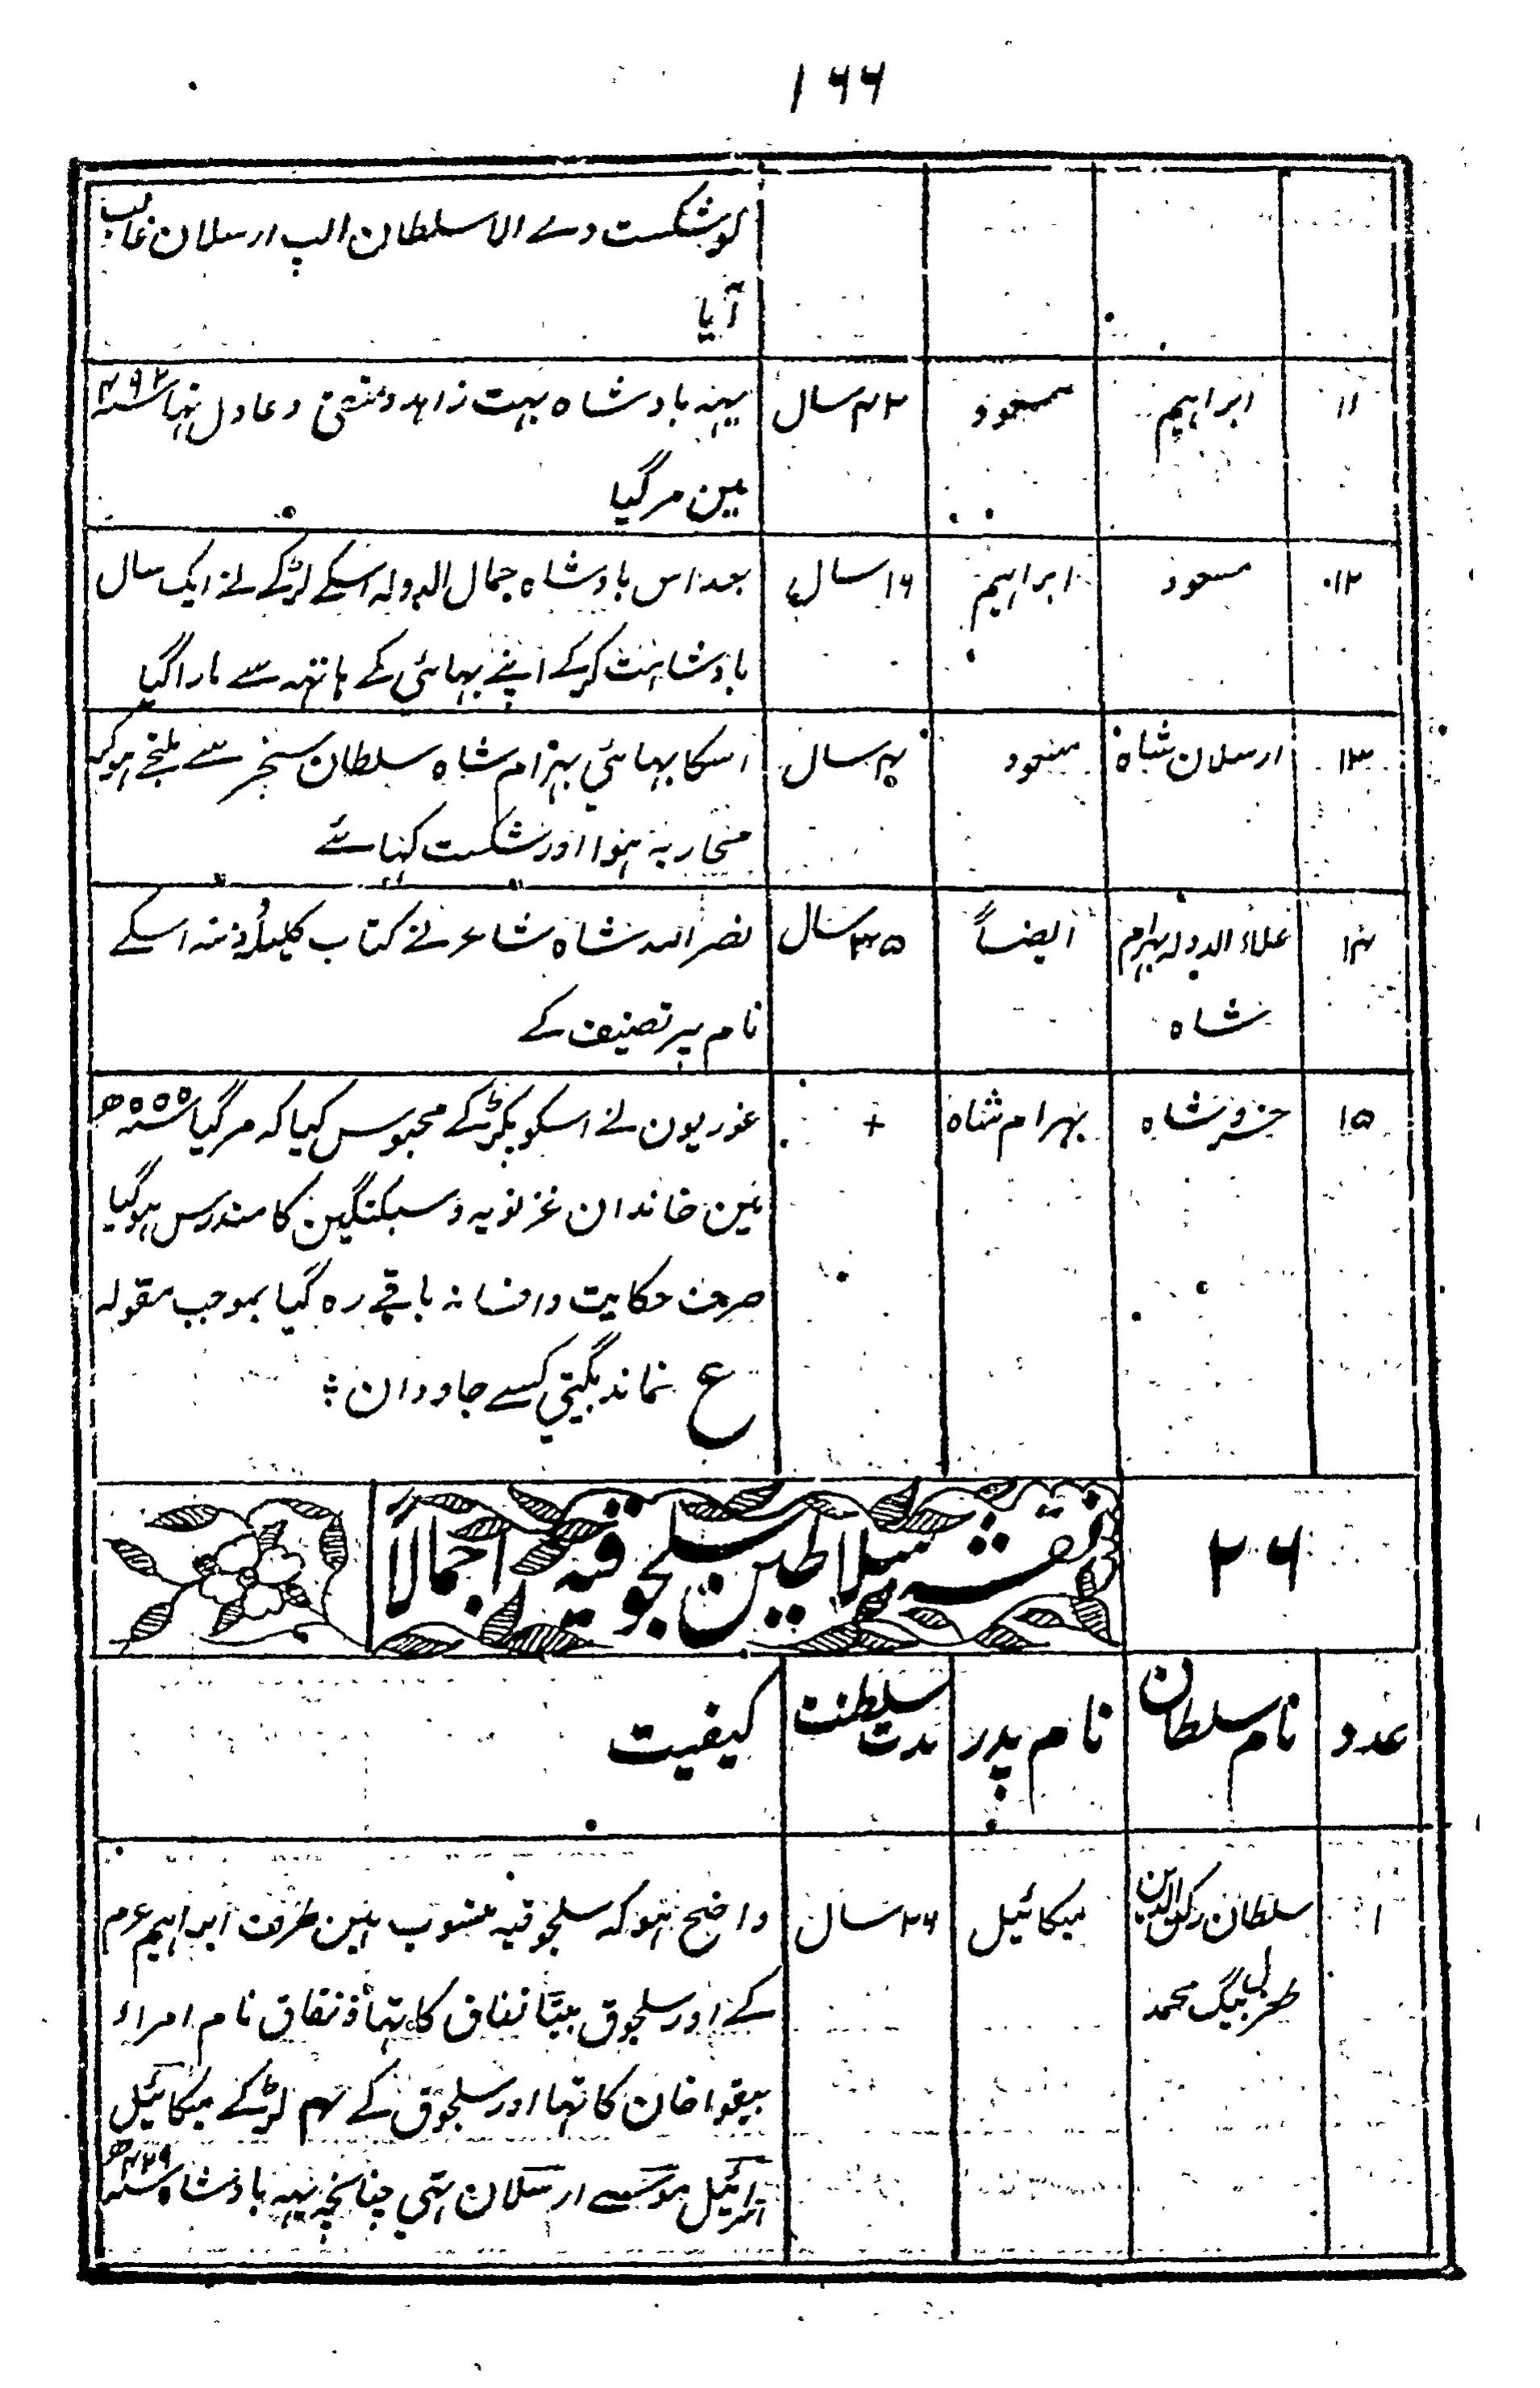 ۱۶۶
کو شکست دے الا سلطان الپ ارسلان غالب
آیا
۱۱ ابراہیم مسعود ۴۲ سال یہہ بادشاہ بہت زاہد و متقی و عادل تہا سنہ ۴۹۲
مین مرگیا
۱۲ مسعود ابراہیم ۱۶ سال بعد اس بادشاہ جمال الدولہ اسکے لڑکے نے ایک سال
بادشاہت کرکے اپنے بہائی کے ہاتہہ سے مارا گیا
۱۳ ارسلان شاہ مسعود ۴ سال اسکا بہائی بہرام شاہ سلطان سنجر سے ملتجے ہوکر
محاربہ ہوا اور شکست کہائے
۱۴ علاء الدولہ بہرام ایضاً ۳۵ سال نصر اللہ شاہ شاعر نے کتاب کلیلہ و دمنہ اسکے
شاہ نام پر تصنیف کے
۱۵ خسرو شاہ بہرام شاہ + غوریون نے اسکو پکڑکے محبوس کیا کہ مرگیا سنہ ۵۵۵ھ
مین خاندان غزنویہ و سبکتگین کا مندرس ہوگیا
صرف حکایت و افسانہ باقے رہ گیا بموجب مقولہ
ع نماند بگیتی کسے جاودان ؛
۲۶ نقشہ سلاطین سلجوقیہ اجمالاً
عدد نام سلطان نام پدر مدت سلطنت کیفیت
۱ سلطان رکن الدین میکائیل ۲۶ سال واضح ہو کہ سلجوقیہ منسوب ہین طرف ابراہیم عم
طغرل بیگ محمد کے اور سلجوق بیٹا نقاق کا تہا و نقاق نام امراء
بیقوا خان کا تہا اور سلجوق کے ۴ لڑکے میکائیل
اسرائیل موسے ارسلان تہی چنانچہ یہہ بادشاہ سنہ ۴۲۹ھ